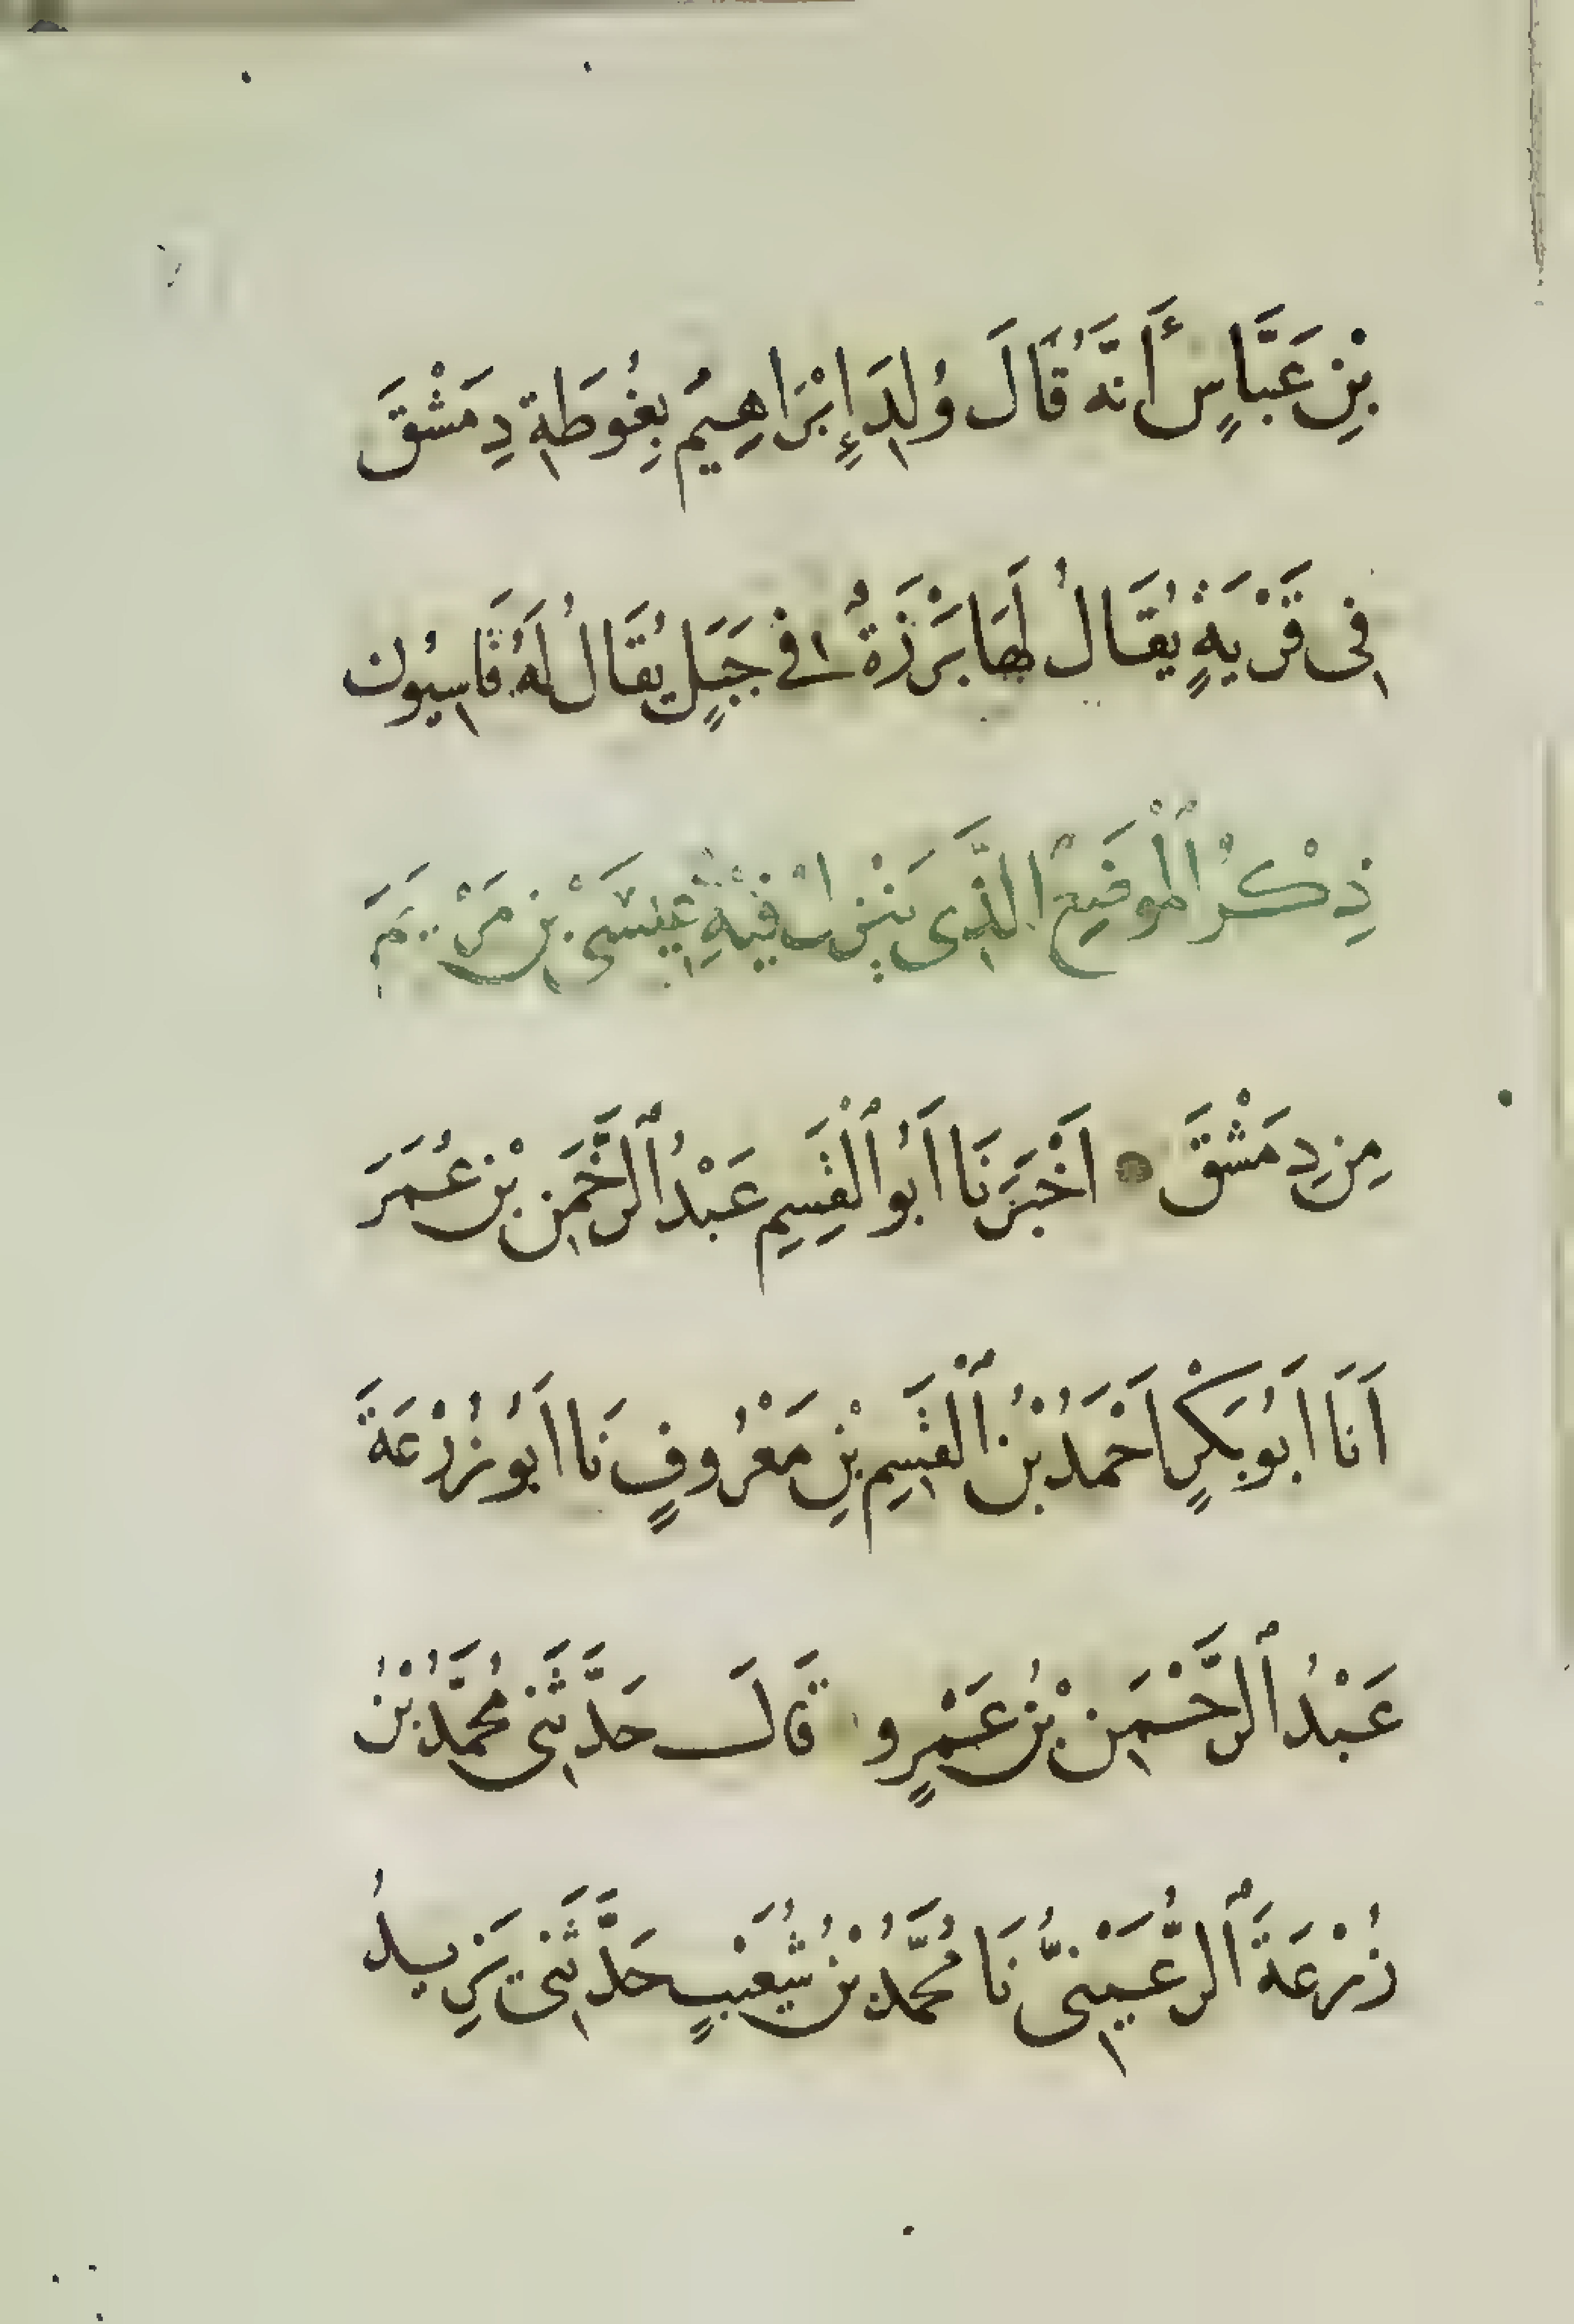 بْنِ عَبَّاسٍ أَنَّهُ قَالَ وُلِدَ إِبْرَاهِيمُ بِغُوطَةِ دِمَشْقَ
فِى قَرْيَةٍ يُقَالُ لَهَا بَرْزَةُ فى جَبَلٍ يُقَالُ لَهُ قَاسِيُون
ذِكْرُ ٱلْمَوضِعِ الَّذِى يَنْزِلُ فِيْهِ عِيسَى بْنِ مَرْيَمَ
مِن دِمَشْقَ اَخْبَرَنَا اَبُو ٱلْقَسِمِ عَبْدُ ٱلرَّحْمَنِ بْنِ عُمَرَ
اَنَا اَبُو بَكْرٍ اَحْمَدُ بْنُ ٱلْقَسِمِ بْنِ مَعْرُوفٍ نَا اَبُو زُرْعَةَ
عَبْدُ ٱلرَّحْمَنِ بْنُ عَمْرٍو قَالَ حَدَّثَنِى مُحَمَّدُ بْنُ
زُرْعَةَ ٱلرُّعَيْنِىُّ نَا مُحَمَّدُ بْنُ شُعَيْبٍ حَدَّثَنِى يَزِيدُ